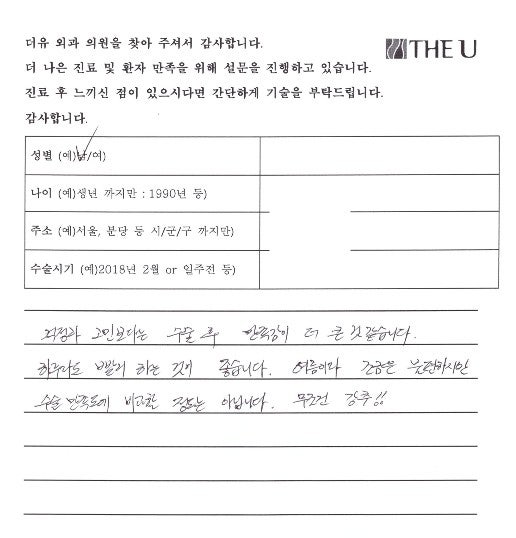 더유 외과 의원을 찾아 주셔서 감사합니다.
THE U
더 나은 진료 및 환자 만족을 위해 설문을 진행하고 있습니다.
진료 후 느끼신 점이 있으시다면 간단하게 기술을 부탁드립니다.
감사합니다.
성별 (예)남/여)
나이 (예)생년 까지만 : 1990년 등)
주소 (예)서울, 분당 등 시/군/구 까지만)
수술시기 (예)2018년 2월 or 일주전 등)
걱정과 고민보다는 수술 후 만족감이 더 큰 것 같습니다.
하루라도 빨리 하는 것이 좋습니다. 여름이라 조금은 불편하지만
수술 만족도에 비교할 정도는 아닙니다. 무조건 강추!!